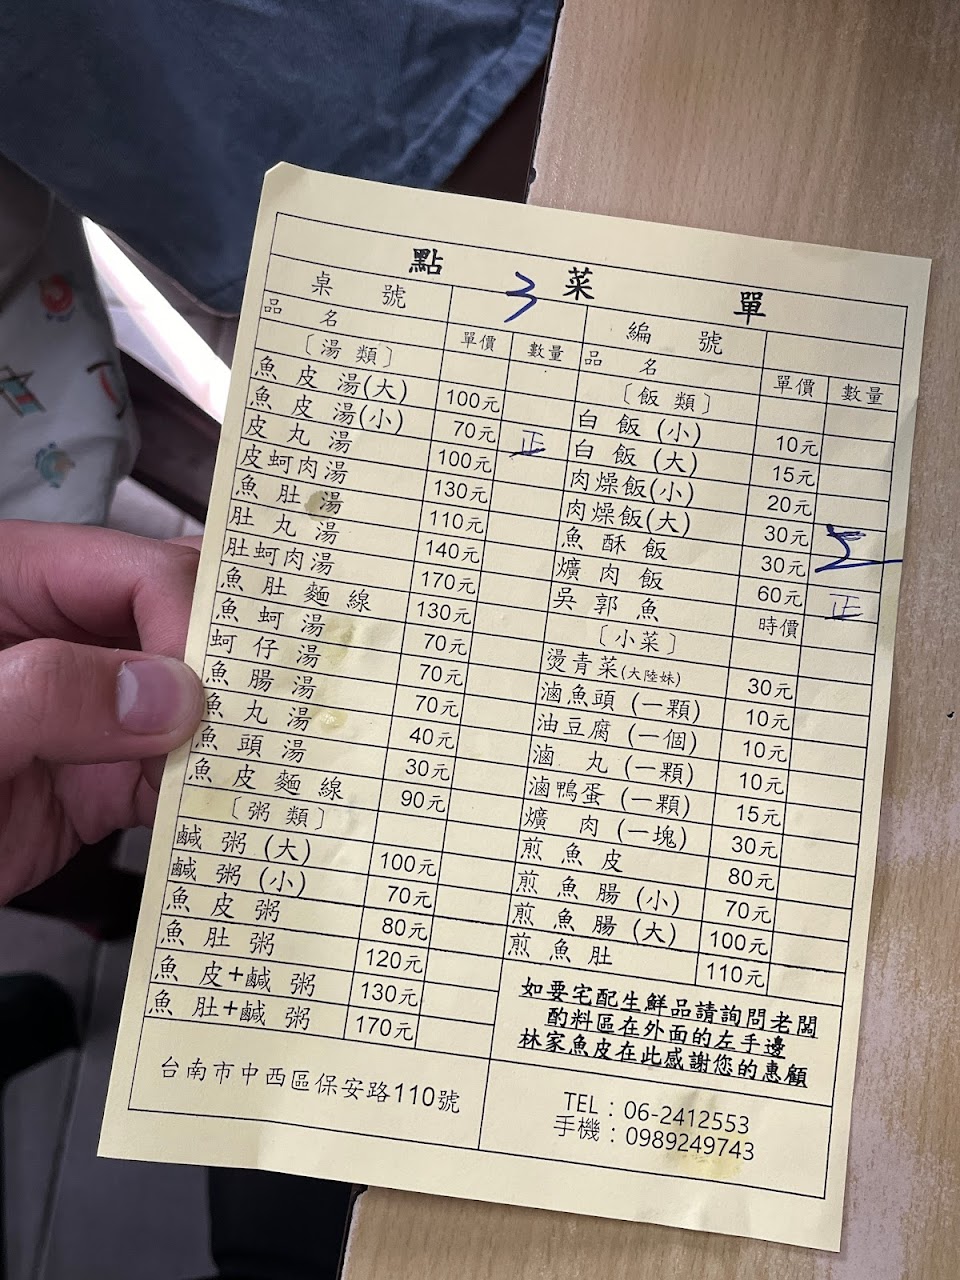 點 菜 單
桌 號 3
編 號
品 名 單價 數量
〔湯 類〕
魚 皮 湯(大) 100元
魚 皮 湯(小) 70元 正
皮 丸 湯 100元
皮蚵肉湯 130元
魚 肚 湯 110元
肚 丸 湯 140元
肚蚵肉湯 170元
魚 肚 麵 線 130元
魚 蚵 湯 70元
蚵 仔 湯 70元
魚 腸 湯 70元
魚 丸 湯 40元
魚 頭 湯 30元
魚 皮 麵 線 90元
〔粥 類〕
鹹 粥 (大) 100元
鹹 粥 (小) 70元
魚 皮 粥 80元
魚 肚 粥 120元
魚 皮+鹹 粥 130元
魚 肚+鹹 粥 170元
台南市中西區保安路110號
品 名 單價 數量
〔飯 類〕
白 飯 (小) 10元
白 飯 (大) 15元
肉燥飯(小) 20元
肉燥飯(大) 30元
魚 酥 飯 30元
爌 肉 飯 60元 正
吳 郭 魚 時價
〔小菜〕
燙青菜(大陸妹) 30元
滷魚頭 (一顆) 10元
油豆腐 (一個) 10元
滷 丸 (一顆) 10元
滷鴨蛋 (一顆) 15元
爌 肉 (一塊) 30元
煎 魚 皮 80元
煎 魚 腸 (小) 70元
煎 魚 腸 (大) 100元
煎 魚 肚 110元
如要宅配生鮮品請詢問老闆
酌料區在外面的左手邊
林家魚皮在此感謝您的惠顧
TEL：06-2412553
手機：0989249743